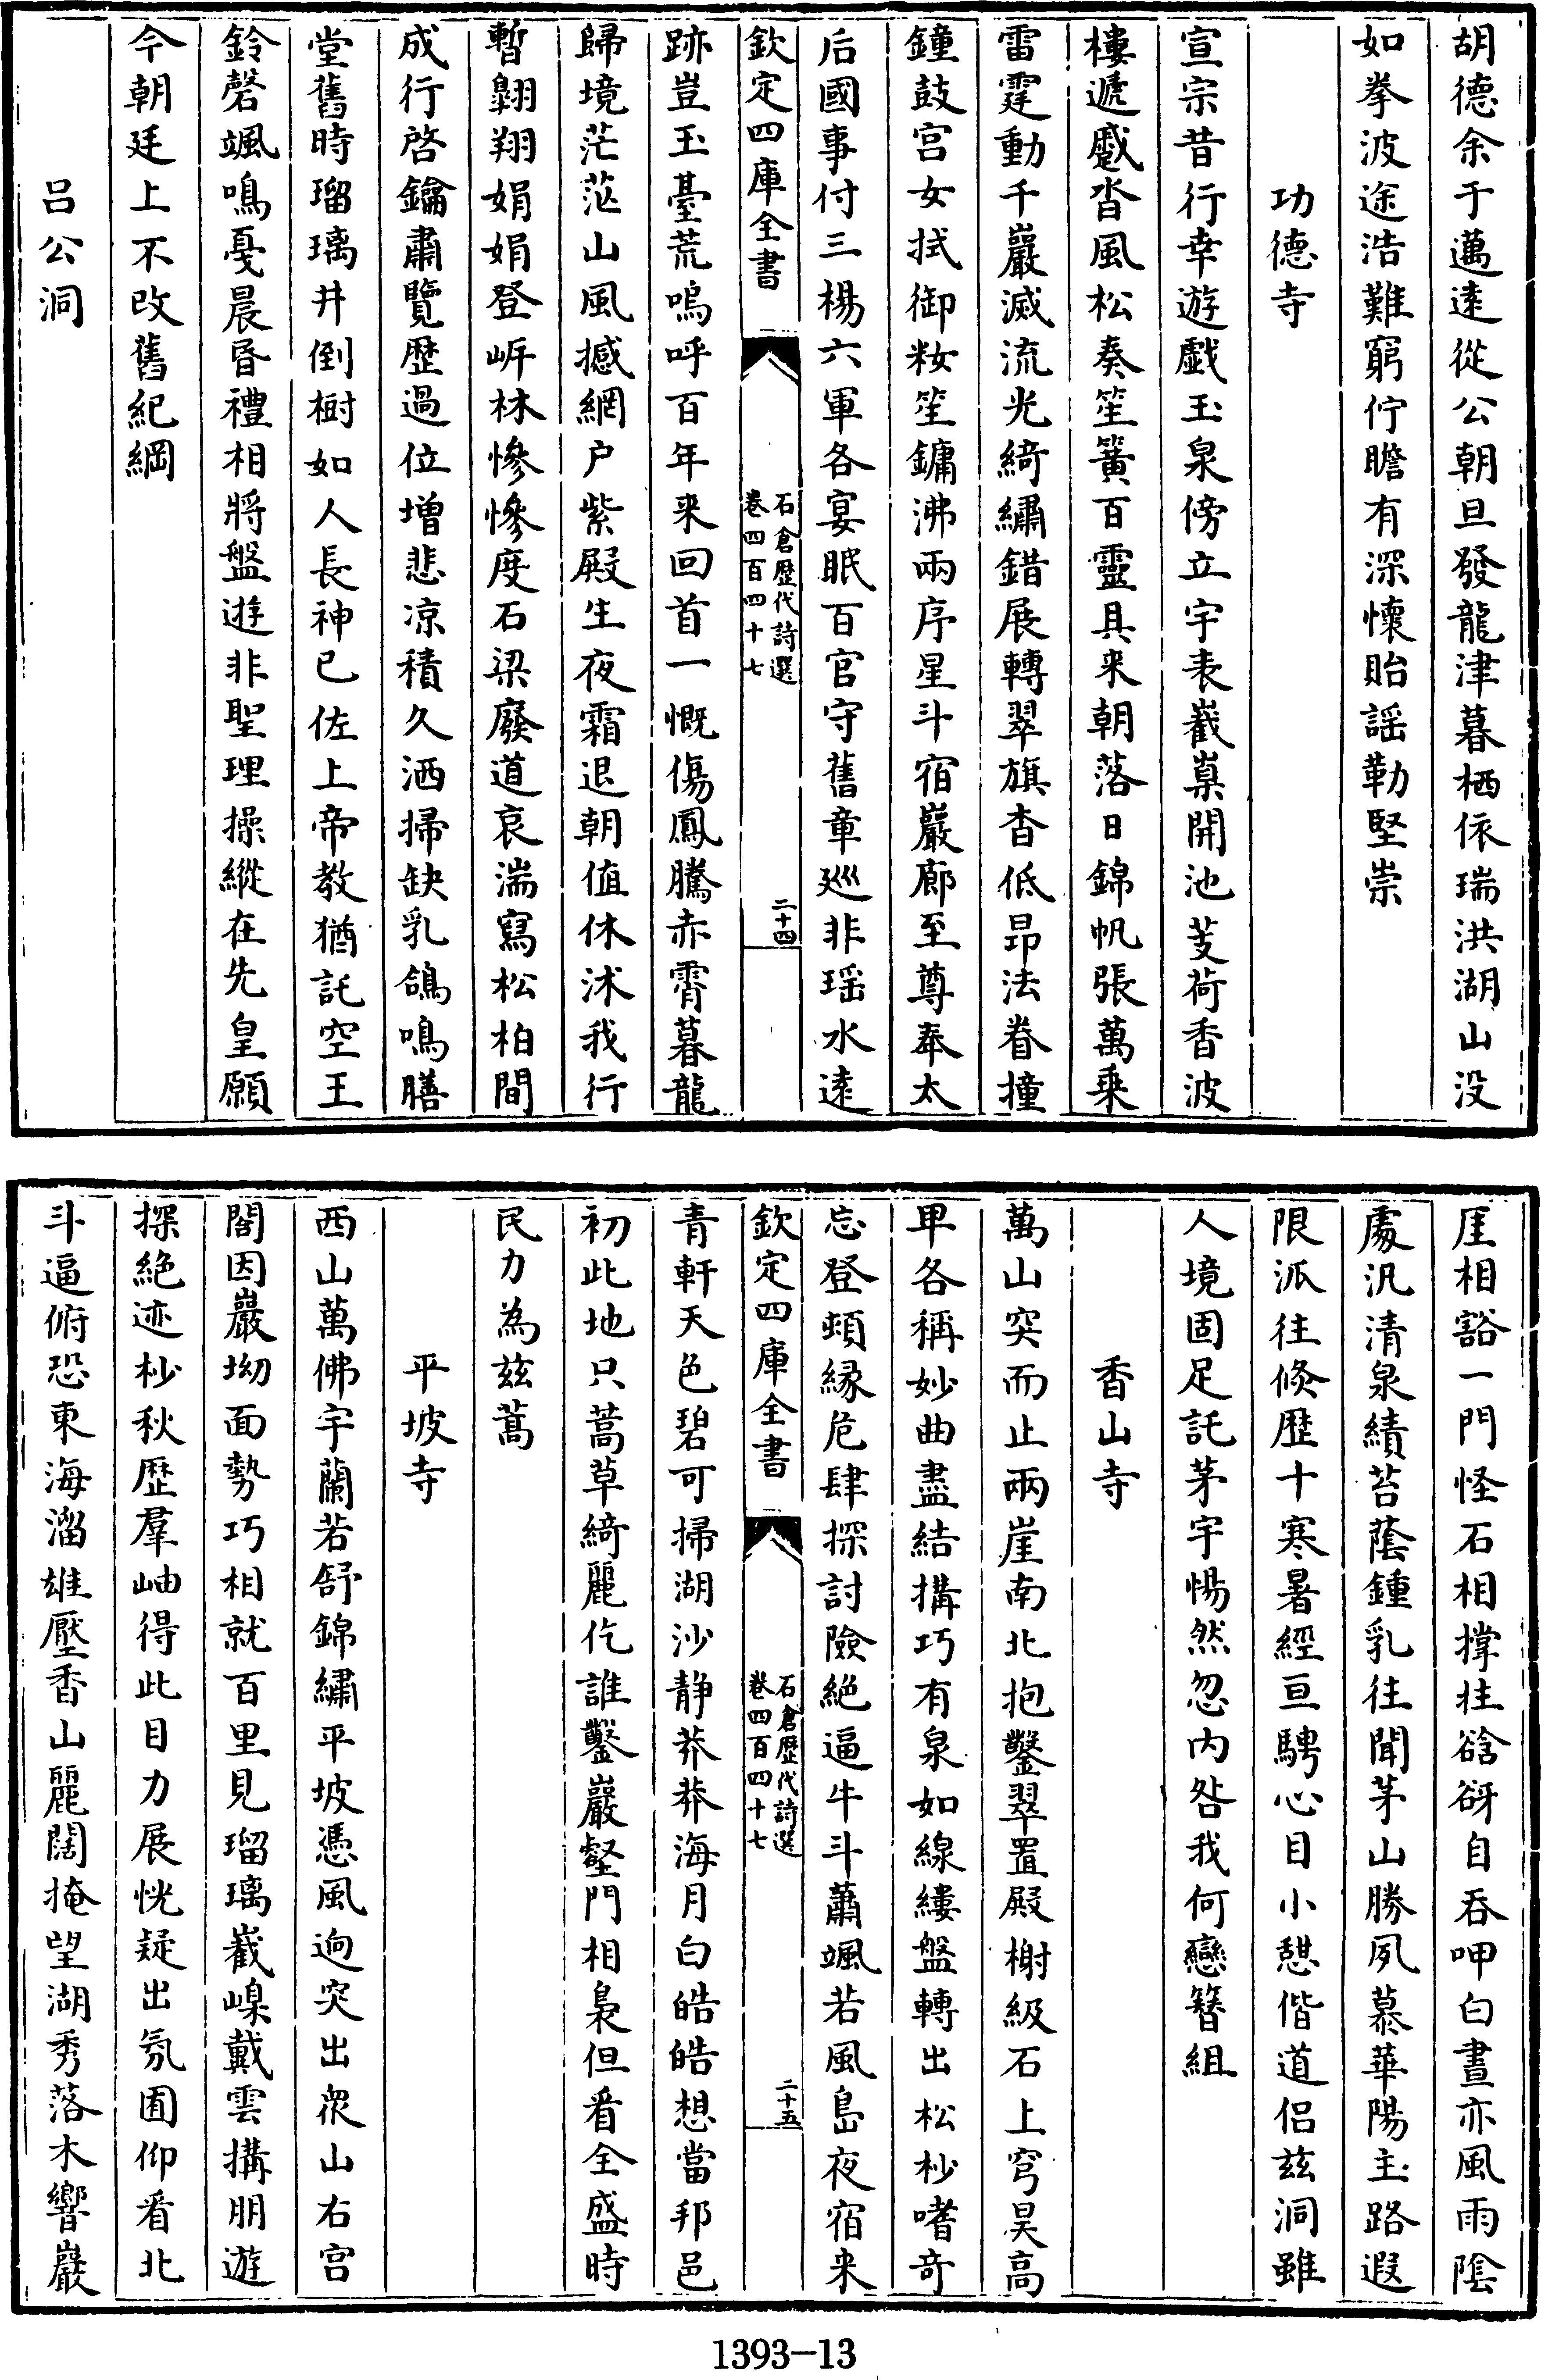 胡德余于邁逺從公朝旦發龍津暮栖依瑞洪湖山没
如拳波途浩難窮佇瞻有深懷貽謡勒堅崇
功德寺
宣宗昔行幸遊戯玉泉傍立宇表嶻嶪開池芰荷香波
樓遞蹙沓風松奏笙簧百靈具来朝落日錦帆張萬乘
雷霆動千巖滅流光綺繡錯展轉翠旗杳低昂法眷撞
鐘鼓宫女拭御粧笙鏞沸兩序星斗宿巖廊至尊奉太
后國事付三楊六軍各宴眠百官守舊章廵非瑶水逺
欽定四庫全書
石倉歴代詩選
卷四百四十七
二十四
跡豈玉臺荒嗚呼百年来回首一慨傷鳳騰赤霄暮龍
歸境茫茫山風撼網户紫殿生夜霜退朝值休沐我行
暫翱翔娟娟登岍林慘慘度石梁廢道哀湍寫松柏間
成行啓鑰肅覽歴過位増悲凉積久洒掃缺乳鴿鳴膳
堂舊時瑠璃井倒樹如人長神已佐上帝教猶託空王
鈴磬颯鳴戛晨昏禮相將盤遊非聖理操縱在先皇願
今朝廷上不改舊紀綱
吕公洞
厓相豁一門怪石相撐拄谽谺自吞呷白晝亦風雨陰
處汎清泉績苔蔭鍾乳往聞茅山勝夙慕華陽主路遐
限派往倏歴十寒暑經亘騁心目小憇偕道侣兹洞雖
人境固足託茅宇惕然忽内咎我何戀簪組
香山寺
萬山突而止兩崖南北抱鑿翠置殿榭級石上穹昊高
甲各稱妙曲盡結搆巧有泉如線縷盤轉出松杪嗜奇
忘登頓縁危肆探討險絶逼牛斗蕭颯若風島夜宿来
欽定四庫全書
石倉歴代詩選
卷四百四十七
二十五
青軒天色碧可掃湖沙静莽莽海月白皓皓想當邦邑
初此地只蒿草綺麗仡誰鑿巖壑門相裊但看全盛時
民力為兹蒿
平坡寺
西山萬佛宇蘭若舒錦繡平坡憑風逈突出衆山右宫
閣因巖坳面勢巧相就百里見瑠璃嶻嵲戴雲搆朋遊
探絶迹杪秋歴羣岫得此目力展恍疑出氛囿仰看北
斗逼俯恐東海溜雄壓香山麗闊掩望湖秀落木響巖
1393-13